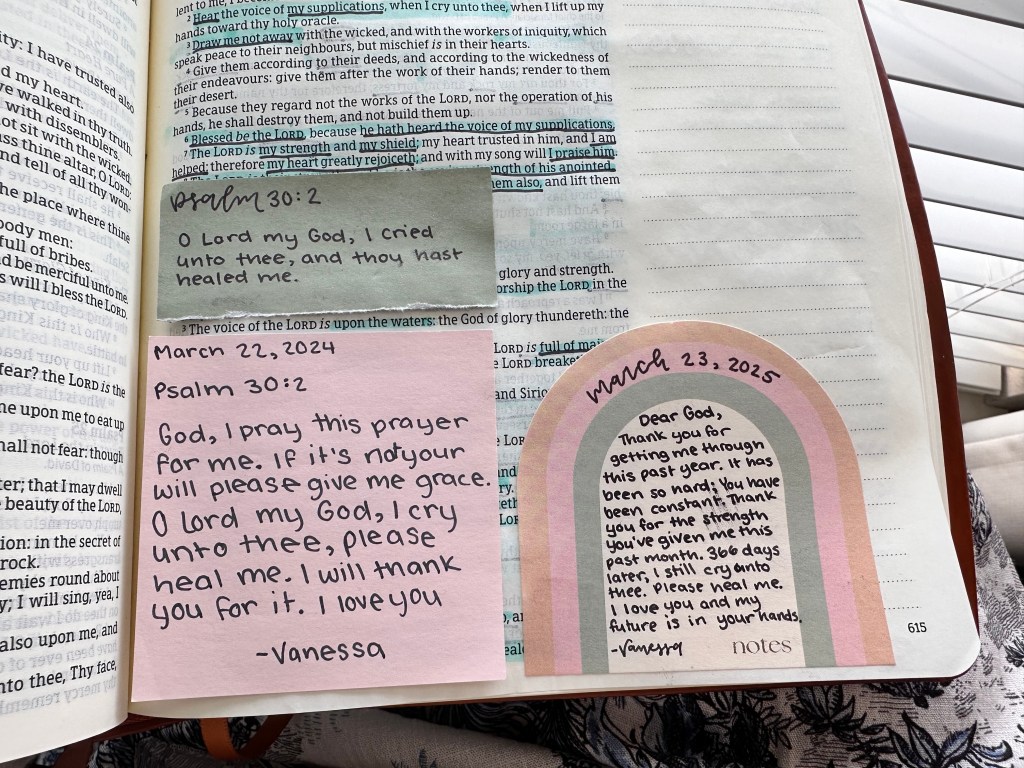 ity: I have trusted also
d my heart.
ve walked in thy truth.
with dissemblers.
ot sit with the wicked.
ass thine altar, O LORD:
nd tell of all thy won-
he place where thine
ody men:
full of bribes.
d be merciful unto me.
s will I bless the LORD.
fear? the LORD is the
me upon me to eat up
hall not fear: though
ter; that I may dwell
e beauty of the LORD,
ion: in the secret of
rock.
emies round about
y; I will sing, yea, I
also upon me, and
nto thee, Thy face,
lent to me, I
2 Hear the voice of my supplications, when I cry unto thee, when I lift up my
hands toward thy holy oracle.
3 Draw me not away with the wicked, and with the workers of iniquity, which
speak peace to their neighbours, but mischief is in their hearts.
4 Give them according to their deeds, and according to the wickedness of
their endeavours: give them after the work of their hands; render to them
their desert.
5 Because they regard not the works of the LORD, nor the operation of his
hands, he shall destroy them, and not build them up.
6 Blessed be the LORD, because he hath heard the voice of my supplications.
7 The LORD is my strength and my shield; my heart trusted in him, and I am
helped: therefore my heart greatly rejoiceth; and with my song will I praise him.
ngth of his anointed.
em also, and lift them
Psalm 30:2
O Lord my God, I cried
unto thee, and thou hast
healed me.
glory and strength.
orship the LORD in the
3 The voice of the LORD is upon the waters: the God of glory thundereth: the
LORD is full of
LORD
and
March 22, 2024
Psalm 30:2
God, I pray this prayer
for me. If it's not your
will please give me grace.
O Lord my God, I cry
unto thee, please
heal me. I will thank
you for it. I love you
-Vanessa
March 23, 2025
Dear God,
Thank you for
getting me through
this past year. It has
been so hard; You have
been constant. Thank
you for the strength
you've given me this
past month. 366 days
later, I still cry unto
thee. Please heal me.
I love you and my
future is in your hands.
-Vanessa
notes
615